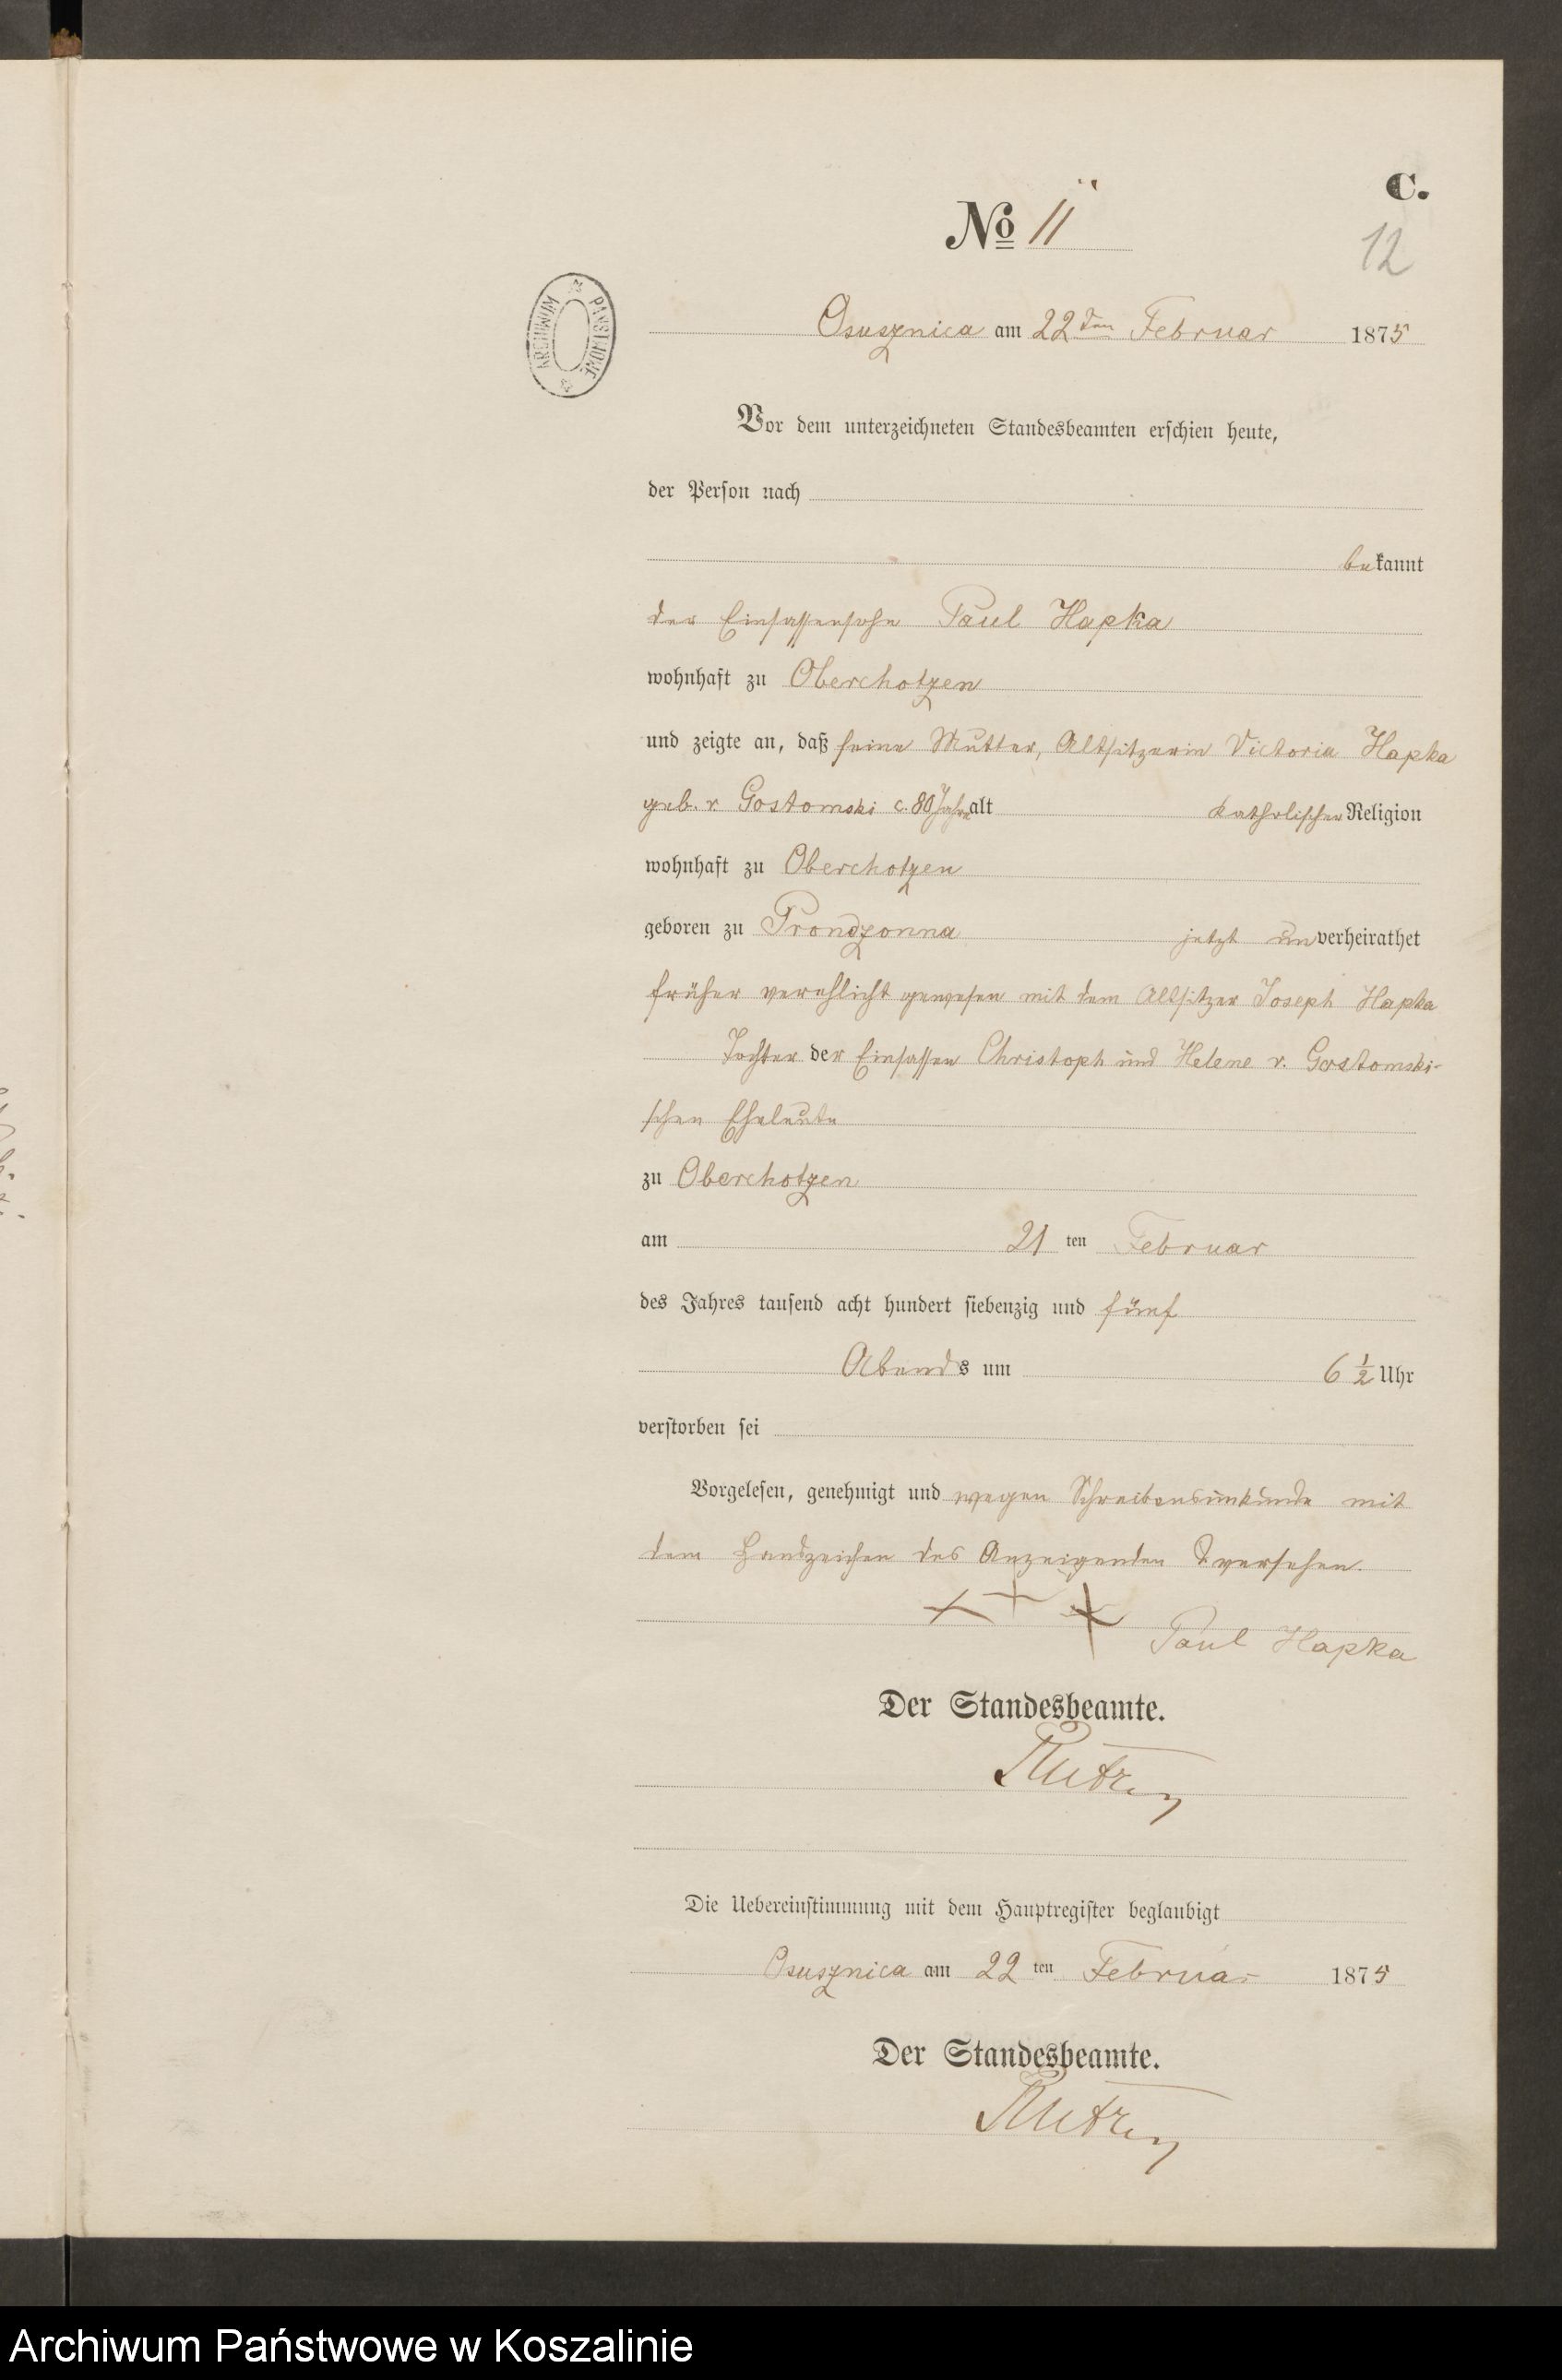 C.
No 11
12
ARCHIWUM PAŃSTWOWE
Osusznica am 22ten Februar 1875
Vor dem unterzeichneten Standesbeamten erschien heute,
der Person nach
bekannt
der Einsassensohn Paul Hapka
wohnhaft zu Oberchotzen
und zeigte an, daß seine Mutter, Altsitzerin Victoria Hapka
geb. v Gostomski c. 80 Jahre alt katholischer Religion
wohnhaft zu Oberchotzen
geboren zu Prondzonna jetzt unverheirathet
früher verehlicht gewesen mit dem Altsitzer Joseph Hapka
Tochter der Einsassen Christoph und Helene v. Gostomski-
schen Eheleute
zu Oberchotzen
am 21 ten Februar
des Jahres tausend acht hundert siebenzig und fünf
Abends um 6 1/2 Uhr
verstorben sei
Vorgelesen, genehmigt und wegen Schreibensunkunde mit
dem Handzeichen des Anzeigenden versehen.
+ + + Paul Hapka
Der Standesbeamte.
Die Uebereinstimmung mit dem Hauptregister beglaubigt
Osusznica am 22 ten Februar 1875
Der Standesbeamte.
Archiwum Państwowe w Koszalinie